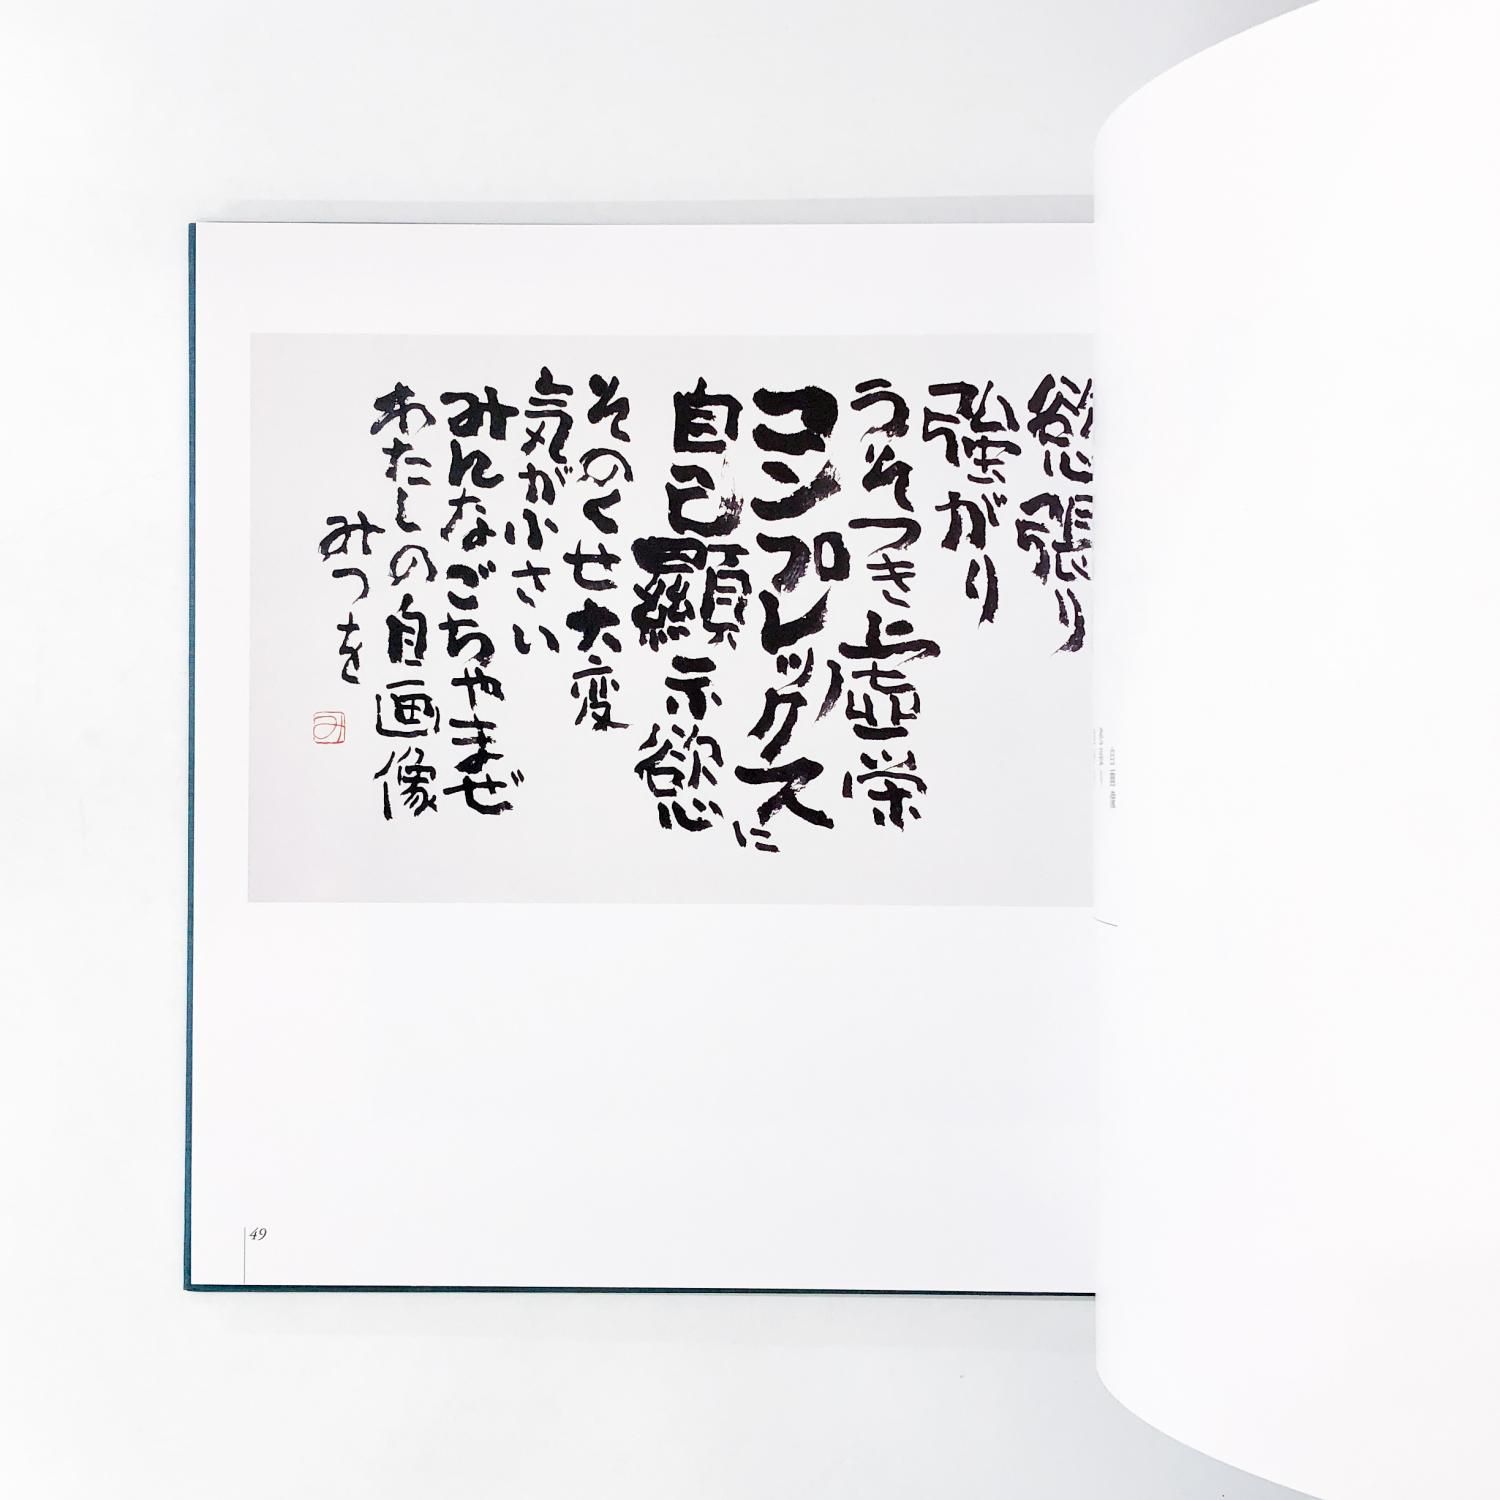 慾張り
強がり
うそつき虚栄
コンプレックスに
自己顯示慾
そのくせ大変
気が小さい
みんなごちゃまぜ
わたしの自画像
みつを
み
49